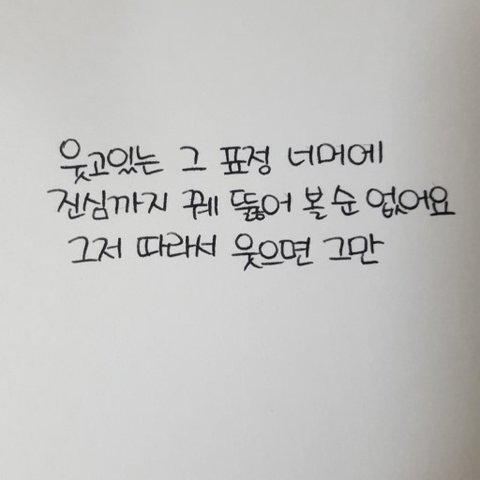 웃고있는 그 표정 너머에
진심까지 꿰 뚫어 볼 순 없어요
그저 따라서 웃으면 그만